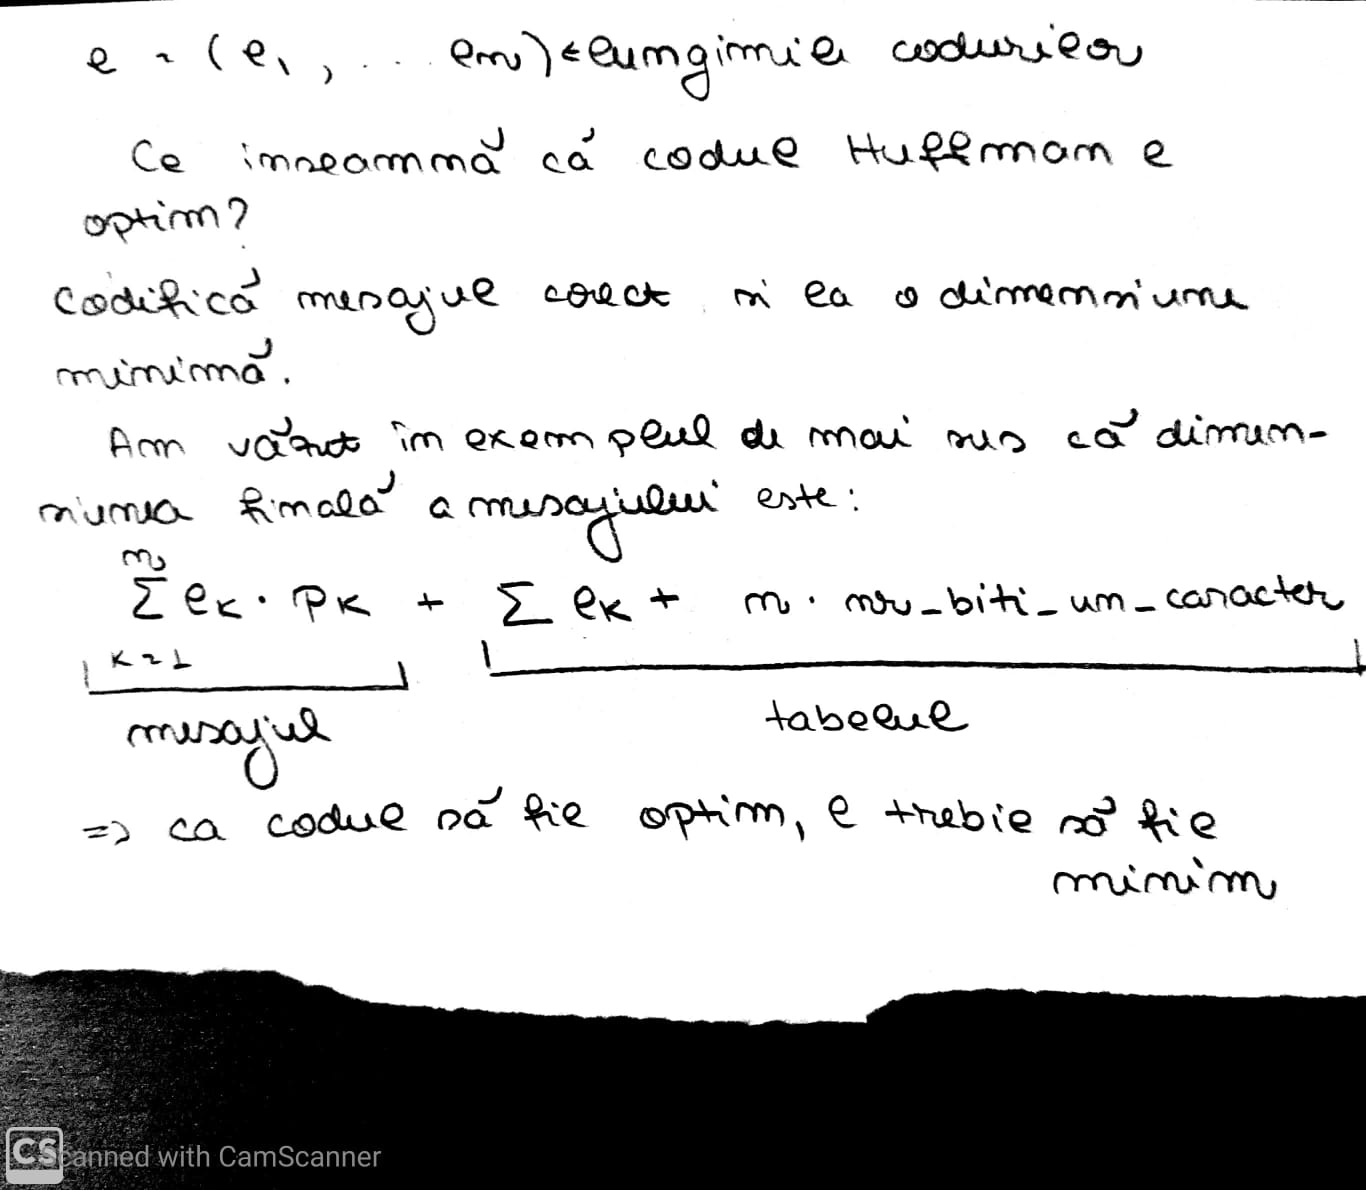 l = (l1, ... ln) = lungimile codurilor
Ce inseamnă că codul Huffman e
optim?
Codifică mesajul corect si la o dimensiune
minimă.
Am văzut în exemplul de mai sus că dimen-
siunea finală a mesajului este:
n
Σ lk · pk + Σ lk + n · nr_biti_un_caracter
k=1
mesajul tabelul
=> ca codul să fie optim, l trebie să fie
minim
CS Scanned with CamScanner